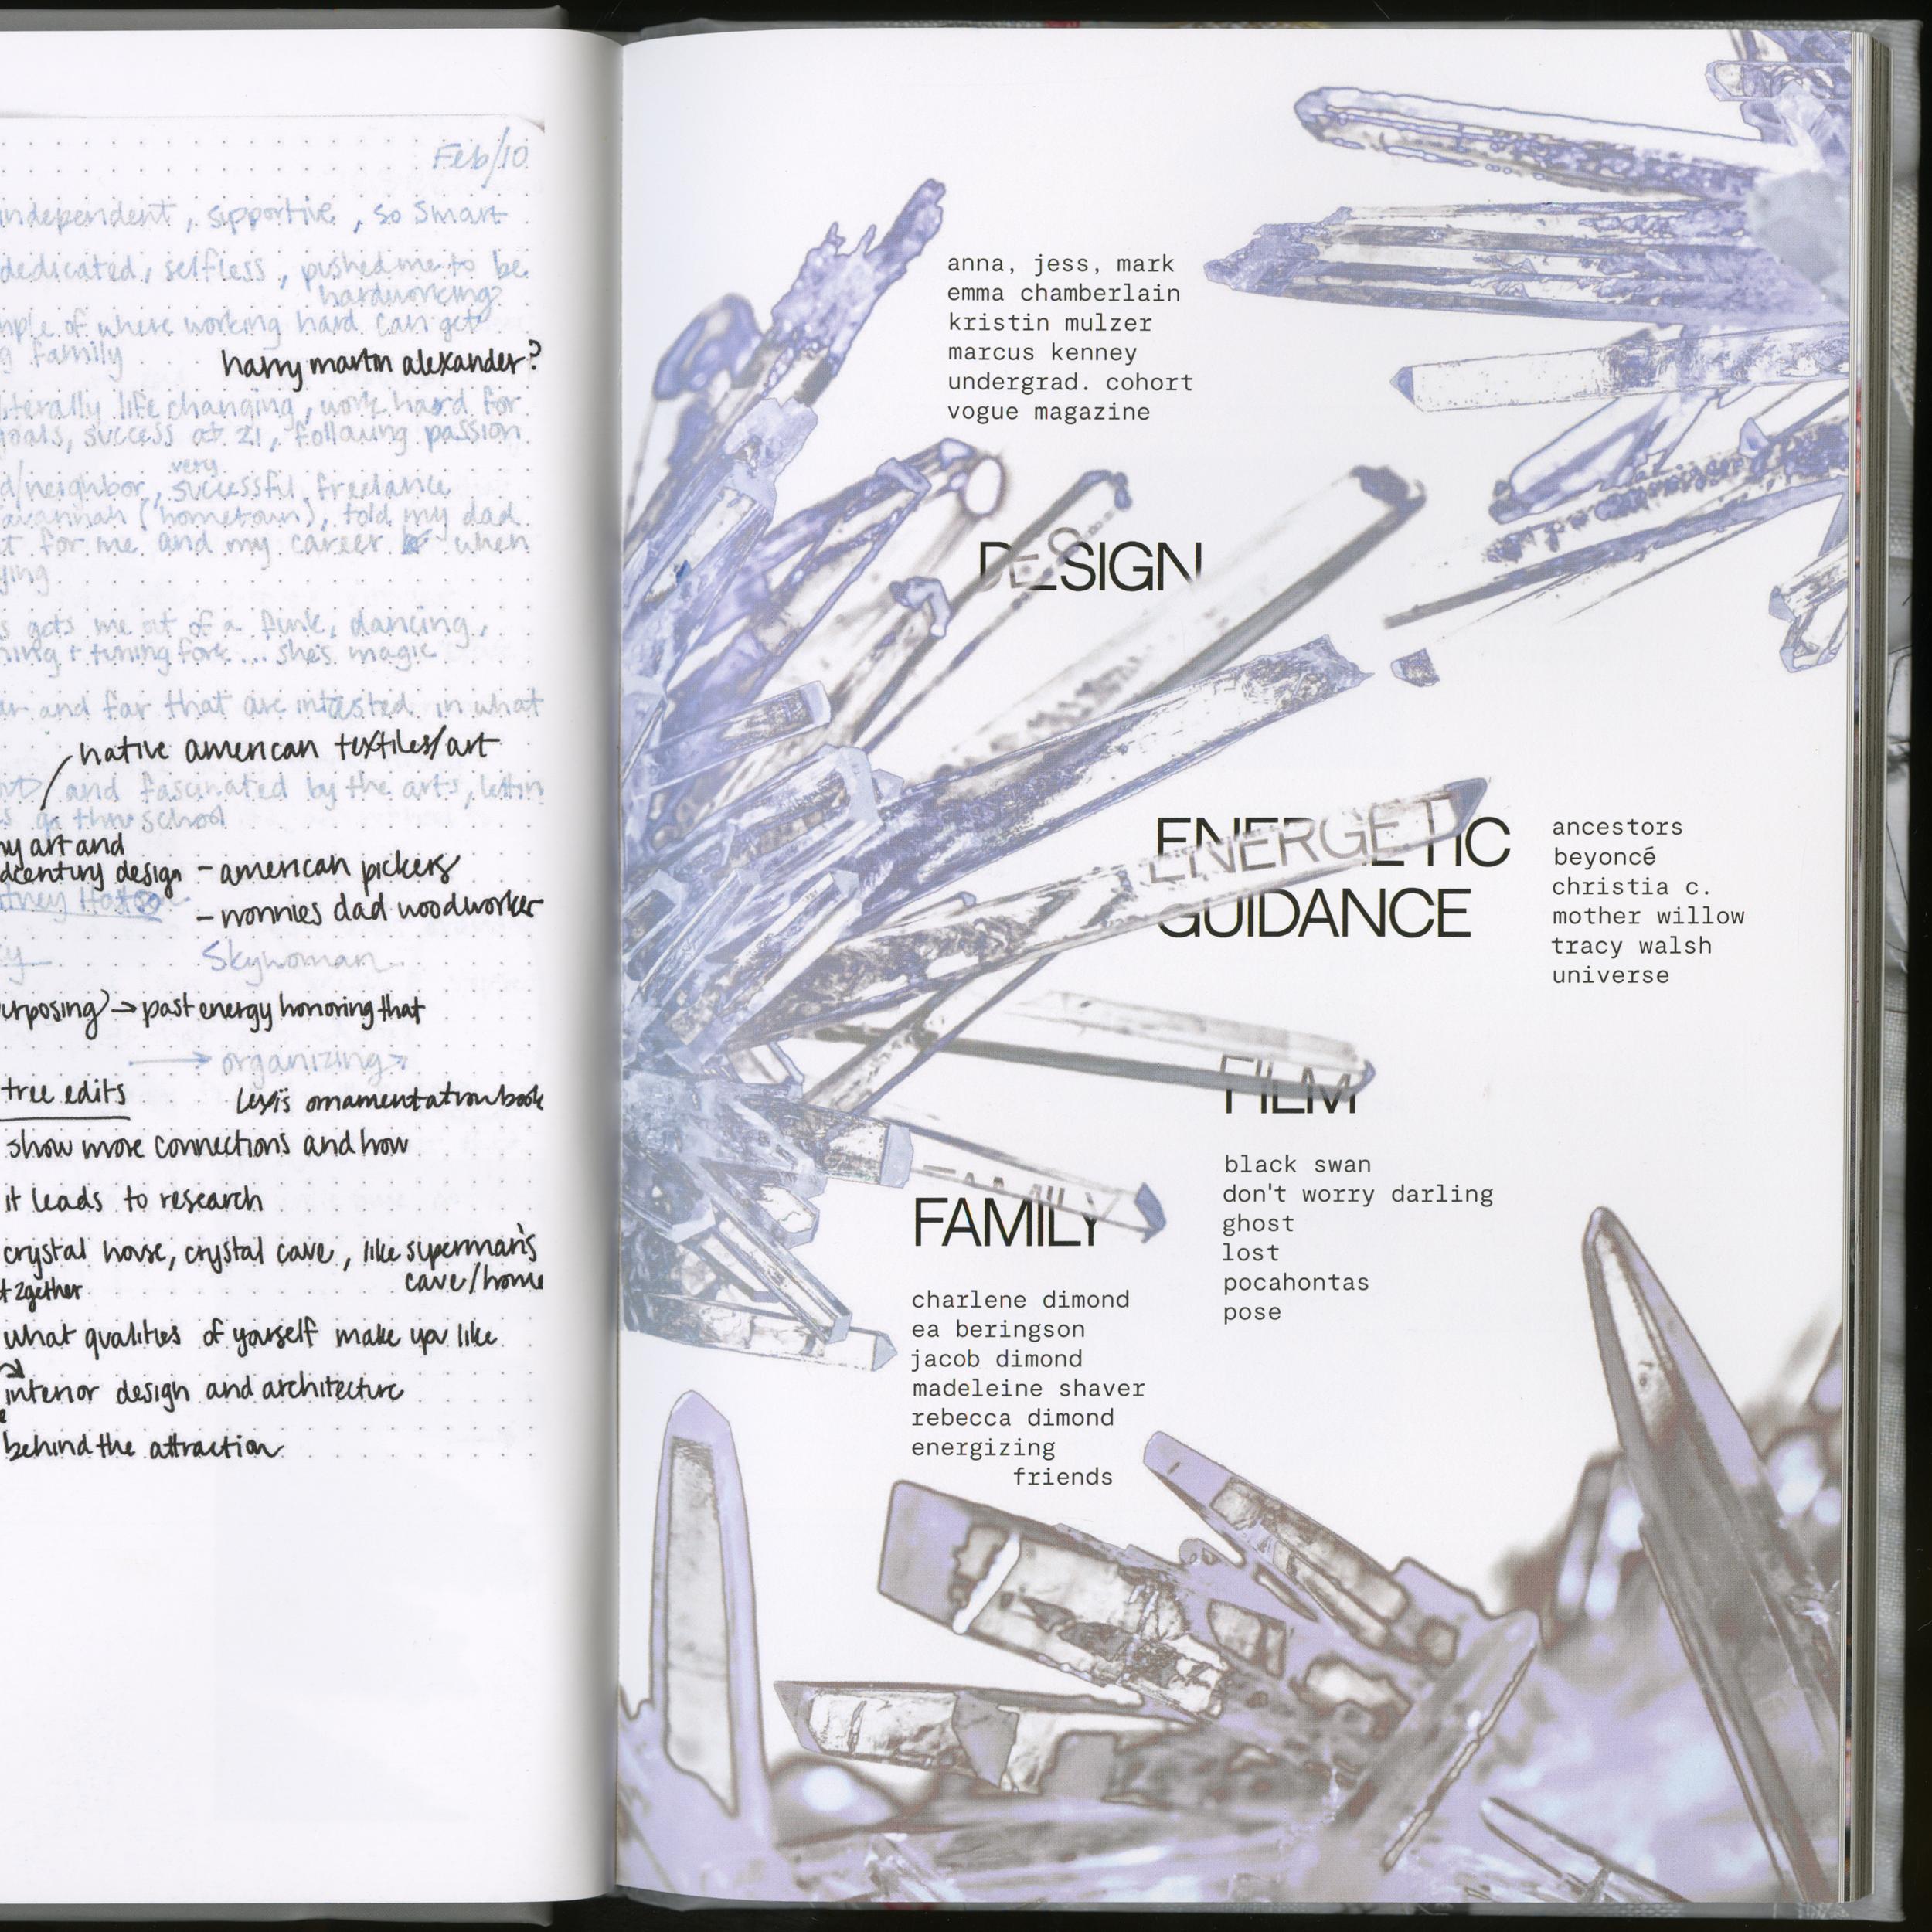 Feb/10
independent, supportive, so smart
dedicated, selfless, pushed me to be
hardworking
of where working hard can get
family
harry martin alexander?
literally life changing, work hard for
goals, success at 21, following passion
very
/neighbor, successful freelance
savannah (hometown), told my dad
for me and my career when
gets me out of a funk, dancing,
+ tuning fork... she's magic
and far that are in what
native american textiles/art
and fascinated by the arts,
thru school
my art and
design - american pickers
- nonnies dad woodworker
Skywoman
→ past energy honoring that
→ organizing →
tree edits
ornamentation book
show more connections and how
it leads to research
crystal house, crystal cave, like superman's
cave/home
2gether
what qualities of yourself make you like
interior design and architecture
behind the attraction
anna, jess, mark
emma chamberlain
kristin mulzer
marcus kenney
undergrad. cohort
vogue magazine
DESIGN
ENERGETIC
GUIDANCE
ancestors
beyoncé
christia c.
mother willow
tracy walsh
universe
FILM
black swan
don't worry darling
ghost
lost
pocahontas
pose
FAMILY
FAMILY
charlene dimond
ea beringson
jacob dimond
madeleine shaver
rebecca dimond
energizing
friends